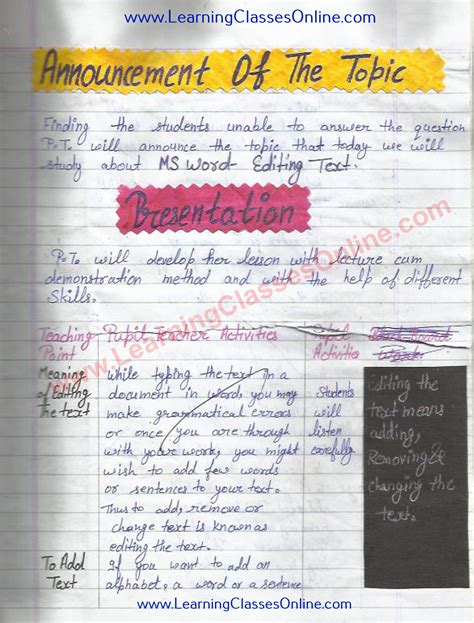 www.LearningClassesOnline.com
Announcement Of The Topic
Finding the students unable to answer the question
P.T. will announce the topic that today we will
study about MS Word- Editing Text.
Presentation
P.T. will develop her lesson with lecture cum
demonstration method and with the help of different
Skills.
www.LearningClassesOnline.com
Teaching Point
Pupil Teacher Activities
Pupil Activities
Black Board Work
Meaning of Editing The text
While typing the text in a
document in word, you may
make grammatical errors
or once you are through
with your work, you might
wish to add few words
or sentences to your text.
Thus to add, remove or
change text is known as
editing the text.
Students
will
listen
carefully.
Editing the
text means
adding,
Removing &
changing the
text.
To Add
Text
If you want to add an
alphabet, a word or a sentence
www.LearningClassesOnline.com